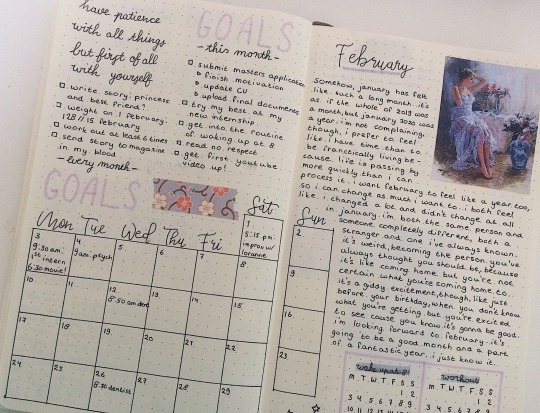 have patience
with all things
but first of all
with yourself
GOALS
- this month -
submit masters application
finish motivation
update CV
upload final documents
try my best at my
new internship
get into the routine
of waking up at 8
read no respect
get first youtube
video up!
write story: princess
and best friend?
weight on 1 february:
128 // 15 february
work out at least 6 times
send story to magazine
in my blood
- every month -
GOALS
Mon Tue Wed Thu Fri Sat Sun
1
5:15 pm:
improv w/
2
3
9:30 am:
1st intern
6:30 movie!
4
9 am: psych
5 6 7 8
9
10 11 12
8:50
13 14 15
16
17 18 19 20 21 22
23
24 25 26
8:30 dentist
27 28 29
February
somehow, january has felt
like such a long month. it's
as if the whole of 2019 was
a month, but january 2020 was
a year. i'm not complaining,
though, i prefer to feel
like i have time than to
be frantically living be-
cause life is passing by
more quickly than i can
process it. i want february to feel like a year, too,
so i can change as much i want to. i both feel
like i changed a lot and didn't change at all
in january. i'm both the same person and
someone completely different, both a
stranger and one i've always known.
it's weird, becoming the person you've
always thought you should be, because
it's like coming home but you're not
certain what you're coming home to.
it's a giddy excitement, though, like just
before your birthday, when you don't know
what you're getting but you're excited
to see cause you know it's gonna be good.
i'm looking forward to february - it's
going to be a good month and a part
of a fantastic year. i just know it.
wake up at 8!
M T W T F S S
1 2
3 4 5 6 7 8 9
10 11 12 13 14 15 16
workout
M T W T F S S
1 2
3 4 5 6 7 8 9